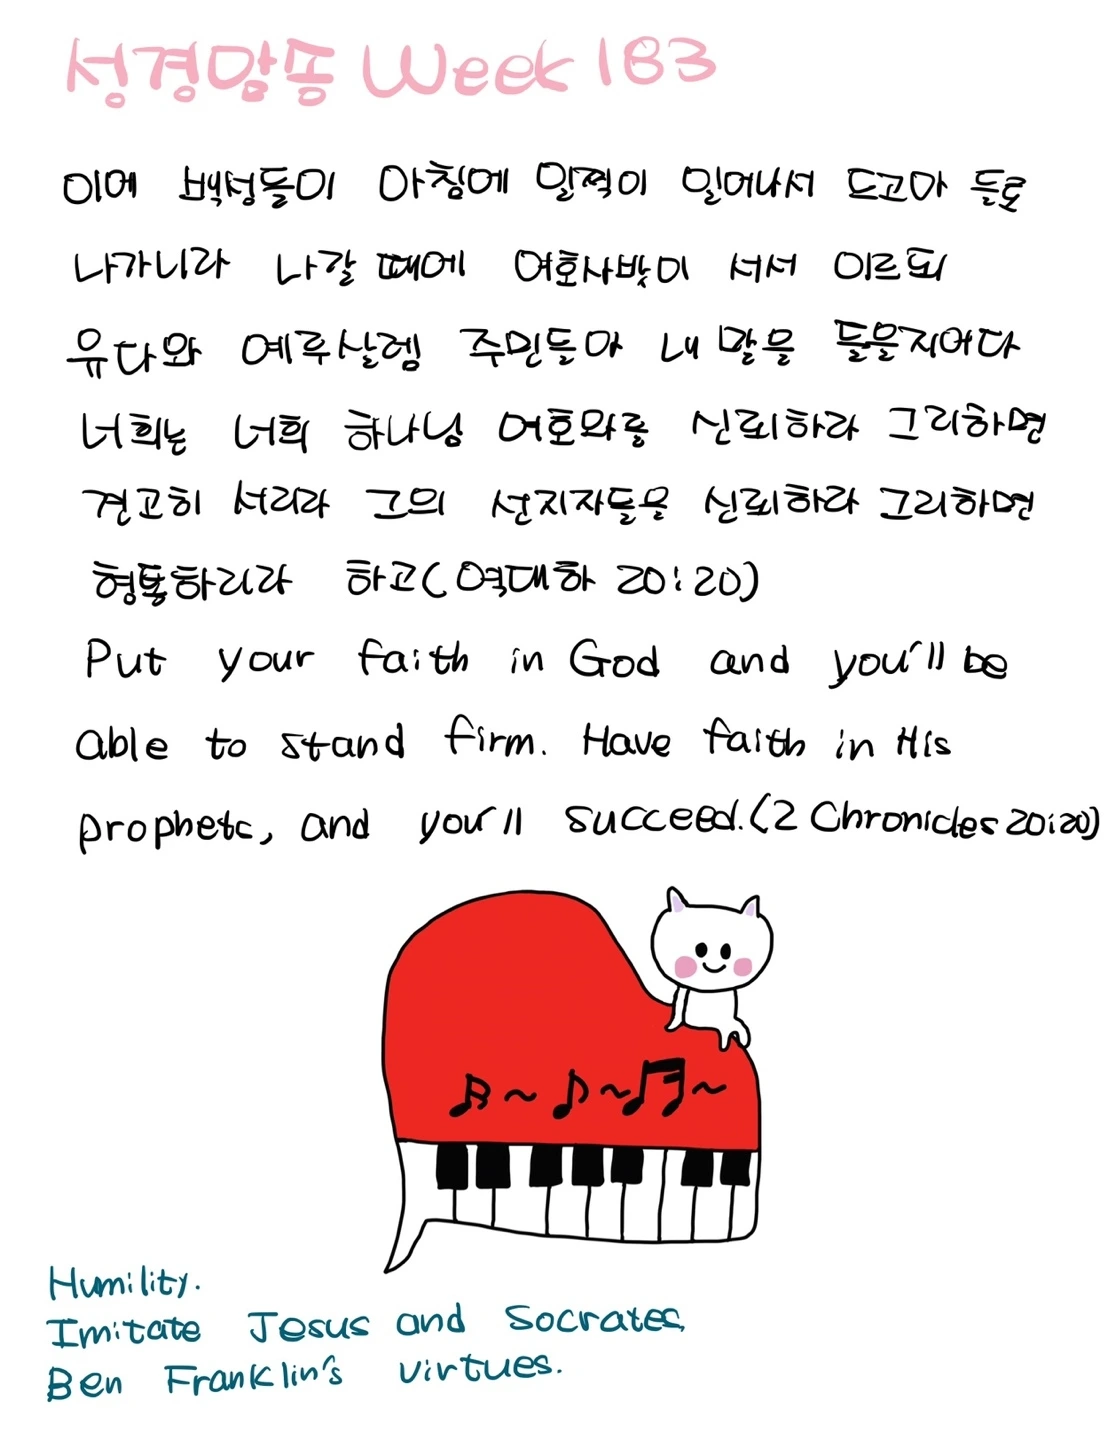 성경암송 Week 183
이에 백성들이 아침에 일찍이 일어나서 드고아 들로
나가니라 나갈 때에 여호사밧이 서서 이르되
유다와 예루살렘 주민들아 내 말을 들을지어다
너희는 너희 하나님 여호와를 신뢰하라 그리하면
견고히 서리라 그의 선지자들을 신뢰하라 그리하면
형통하리라 하고(역대하 20:20)
Put your faith in God and you'll be
able to stand firm. Have faith in His
prophets, and you'll succeed.(2 Chronicles 20:20)
Humility.
Imitate Jesus and Socrates,
Ben Franklin's virtues.